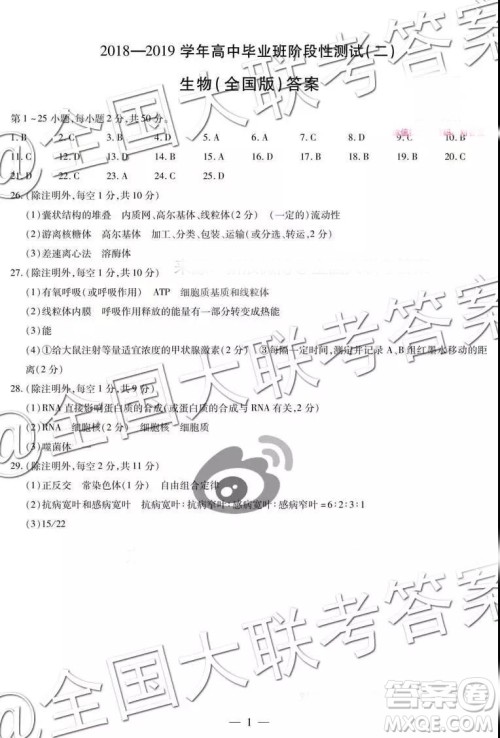 2018—2019 学年高中毕业班阶段性测试(二)
生物(全国版)答案
第 1~25 小题,每小题 2 分,共 50 分。
1. B 2. C 3. B 4. D 5. A 6. D 7. C 8. D 9. C 10. B
11. C 12. D 13. C 14. B 15. A 16. C 17. B 18. A 19. B 20. C
21. D 22. D 23. A 24. C 25. D
26. (除注明外,每空 1 分,共 10 分)
(1)囊状结构的堆叠 内质网、高尔基体、线粒体(2 分) (一定的)流动性
(2)游离核糖体 高尔基体 加工、分类、包装、运输(或分选、转运。)(2 分)
(3)差速离心法 溶酶体
27. (除注明外,每空 1 分,共 10 分)
(1)有氧呼吸(或呼吸作用) ATP 细胞质基质和线粒体
(2)线粒体内膜 呼吸作用释放的能量有一部分转变成热能
(3)能
(4)①给大鼠注射等量适宜浓度的甲状腺激素(2 分) ③每隔一定时间,测定并记录 A、B 组红墨水移动的
距离(2 分)
28. (除注明外,每空 1 分,共 9 分)
(1)RNA 直接影响蛋白质的合成(或蛋白质的合成与 RNA 有关)(2 分)
(2)RNA 细胞核 细胞核 细胞质
(3)噬菌体
29. (除注明外,每空 2 分,共 11 分)
(1)正反交 常染色体(1 分) 自由组合定律
(2)抗病宽叶和感病宽叶 抗病宽叶∶抗病窄叶∶感病宽叶∶感病窄叶=6∶2∶3∶1
(3)15/22
— 1 —
@全国大联考答案
@全国大联考答案
@全国大联考答案
答案圈
MXQE.COM